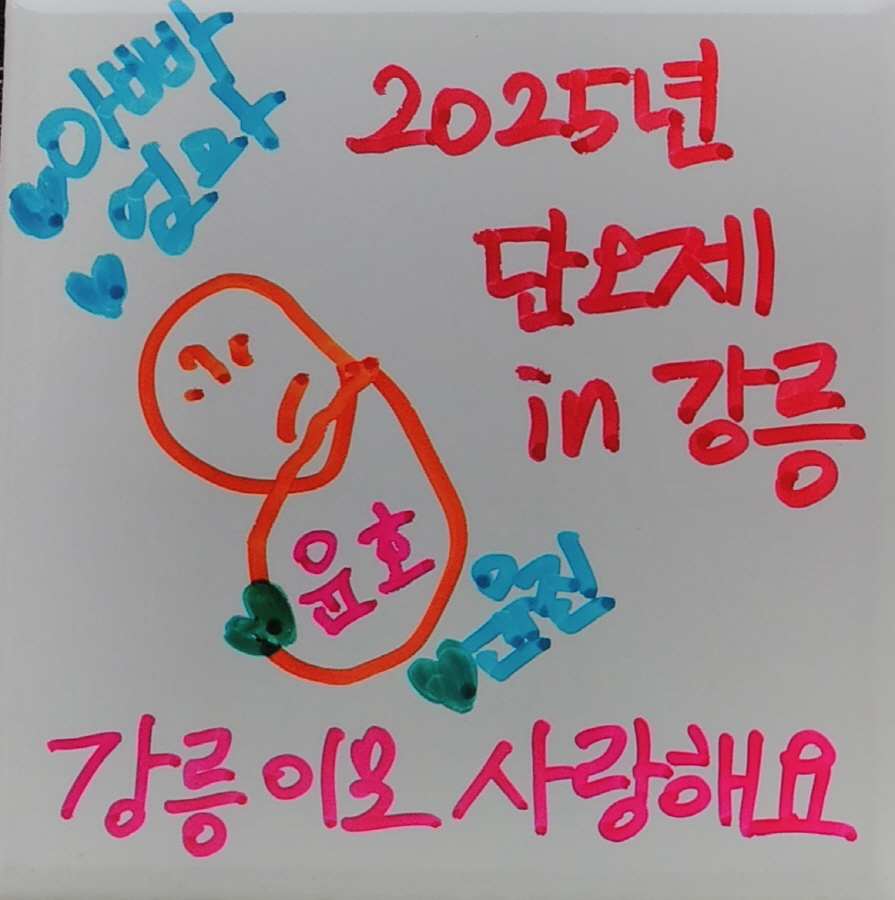 아빠
엄마
2025년
단오제
in 강릉
윤호
강릉이모 사랑해요